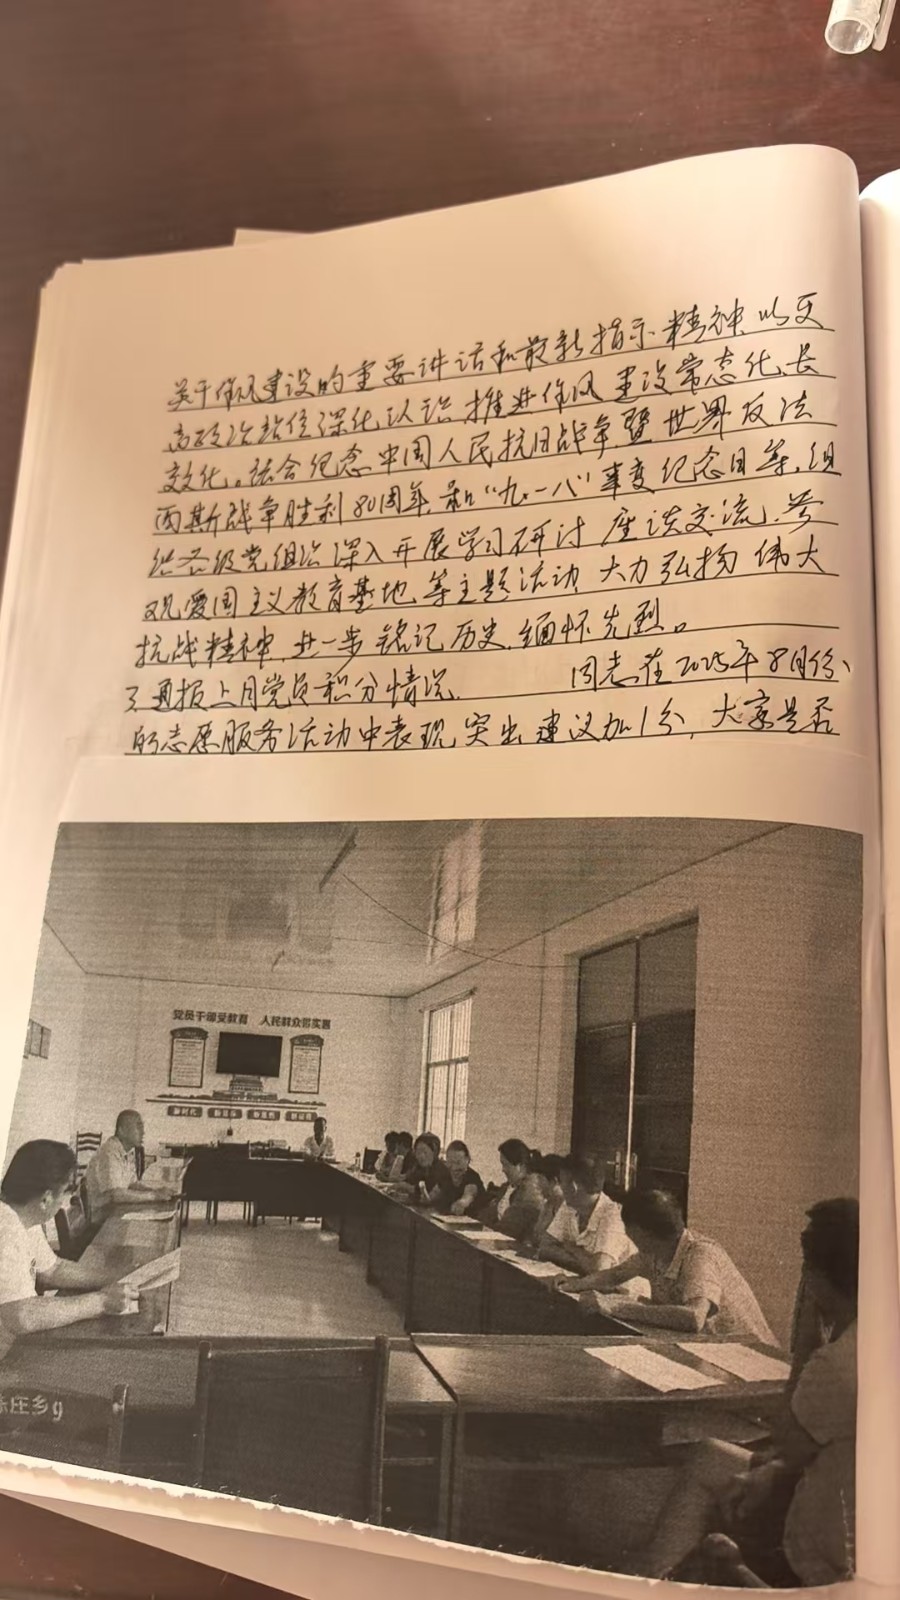 关于作风建设的重要讲话和最新指示精神,以更
高政治站位深化认识,推进作风建设常态化长
效化。结合纪念中国人民抗日战争暨世界反法
西斯战争胜利80周年和“九.一八”事变纪念日等,组
织各级党组织深入开展学习研讨、座谈交流、参
观爱国主义教育基地等主题活动,大力弘扬伟大
抗战精神,进一步铭记历史,缅怀先烈。
3.通报上月党员积分情况. 同志在2025年8月份
的志愿服务活动中表现突出,建议加1分,大家是否
党员干部受教育 人民群众得实惠
新时代
庄乡g